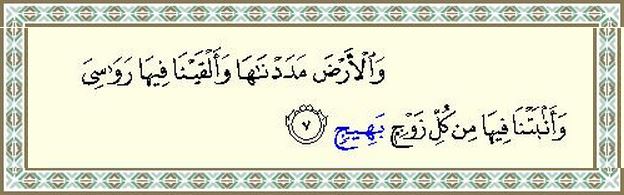 وَٱلْأَرْضَ مَدَدْنَـٰهَا وَأَلْقَيْنَا فِيهَا رَوَٰسِىَ
وَأَنۢبَتْنَا فِيهَا مِن كُلِّ زَوْجٍۭ بَهِيجٍ ٧